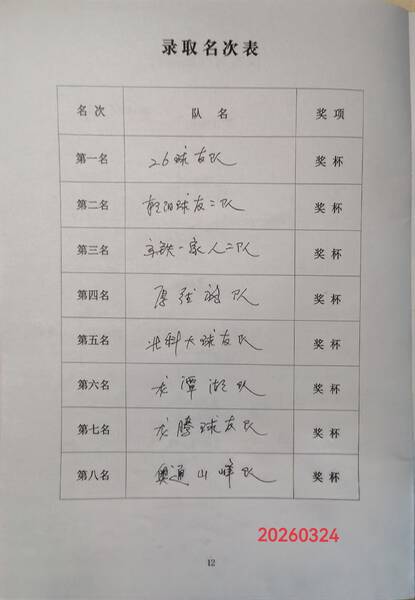 录取名次表
名次 队名 奖项
第一名 26球友队 奖杯
第二名 朝阳球友二队 奖杯
第三名 京铁一家人二队 奖杯
第四名 队 奖杯
第五名 北科大球友队 奖杯
第六名 龙潭湖队 奖杯
第七名 龙腾球友队 奖杯
第八名 奥通山峰队 奖杯
20260324
12